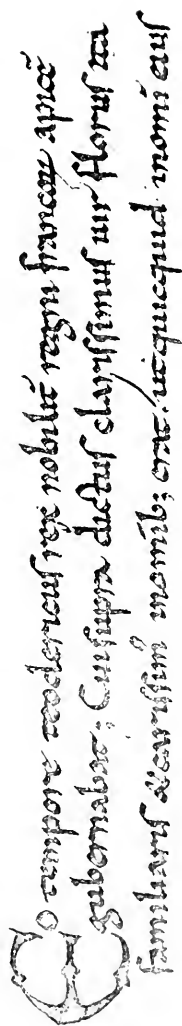 Eo tempore teodericus rex nobilē regni francoꝝ apicē
gubernabat; Cui supra dictus clarissimus uir florus ita
familiaris & carissim' inomib; erat, ut quicquid inomī eius